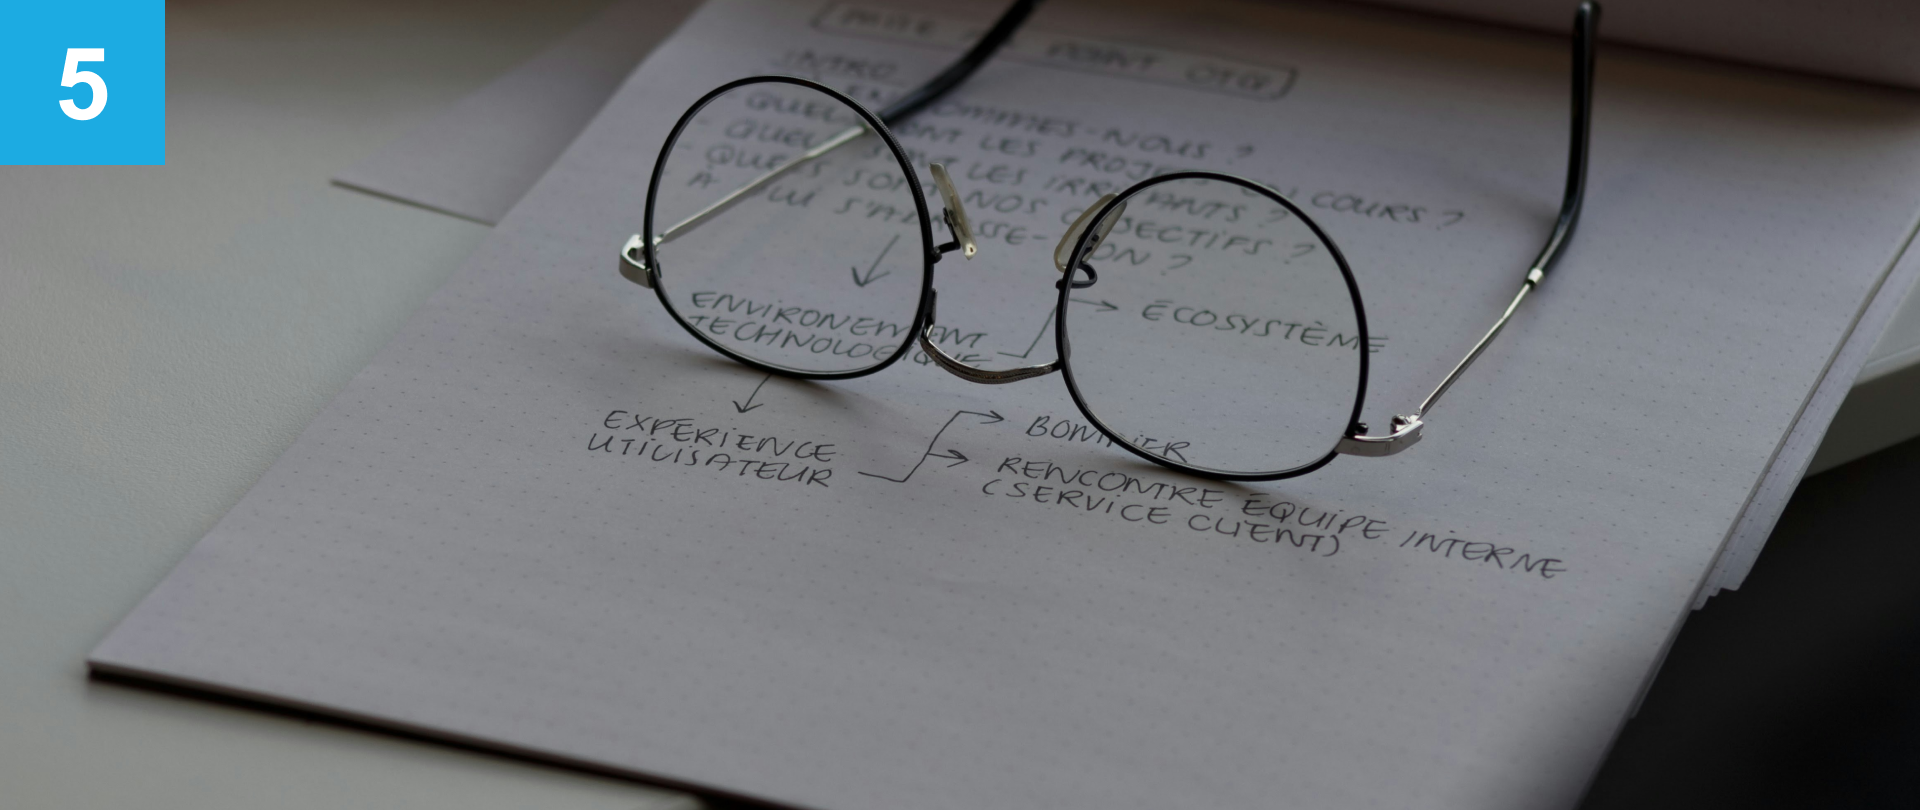 5
POINT
INTRO
SOMMES-NOUS ?
QUELS SONT LES PROJETS EN COURS ?
QUELS SONT LES IRRITANTS ?
QUELS SONT NOS OBJECTIFS ?
À LUI S'ADRESSE-ON ?
ENVIRONEMENT
TECHNOLOGIQUE
ÉCOSYSTÈME
EXPÉRIENCE
UTILISATEUR
BONIFIER
RENCONTRE ÉQUIPE INTERNE
(SERVICE CLIENT)